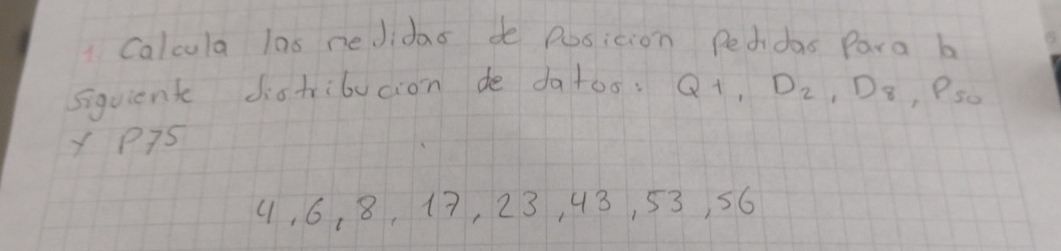 1. Calcula las medidas de posicion pedidas para la
siguiente distribucion de datos: Q1, D2, D8, P50
Y P75
4, 6, 8, 17, 23, 43, 53, 56